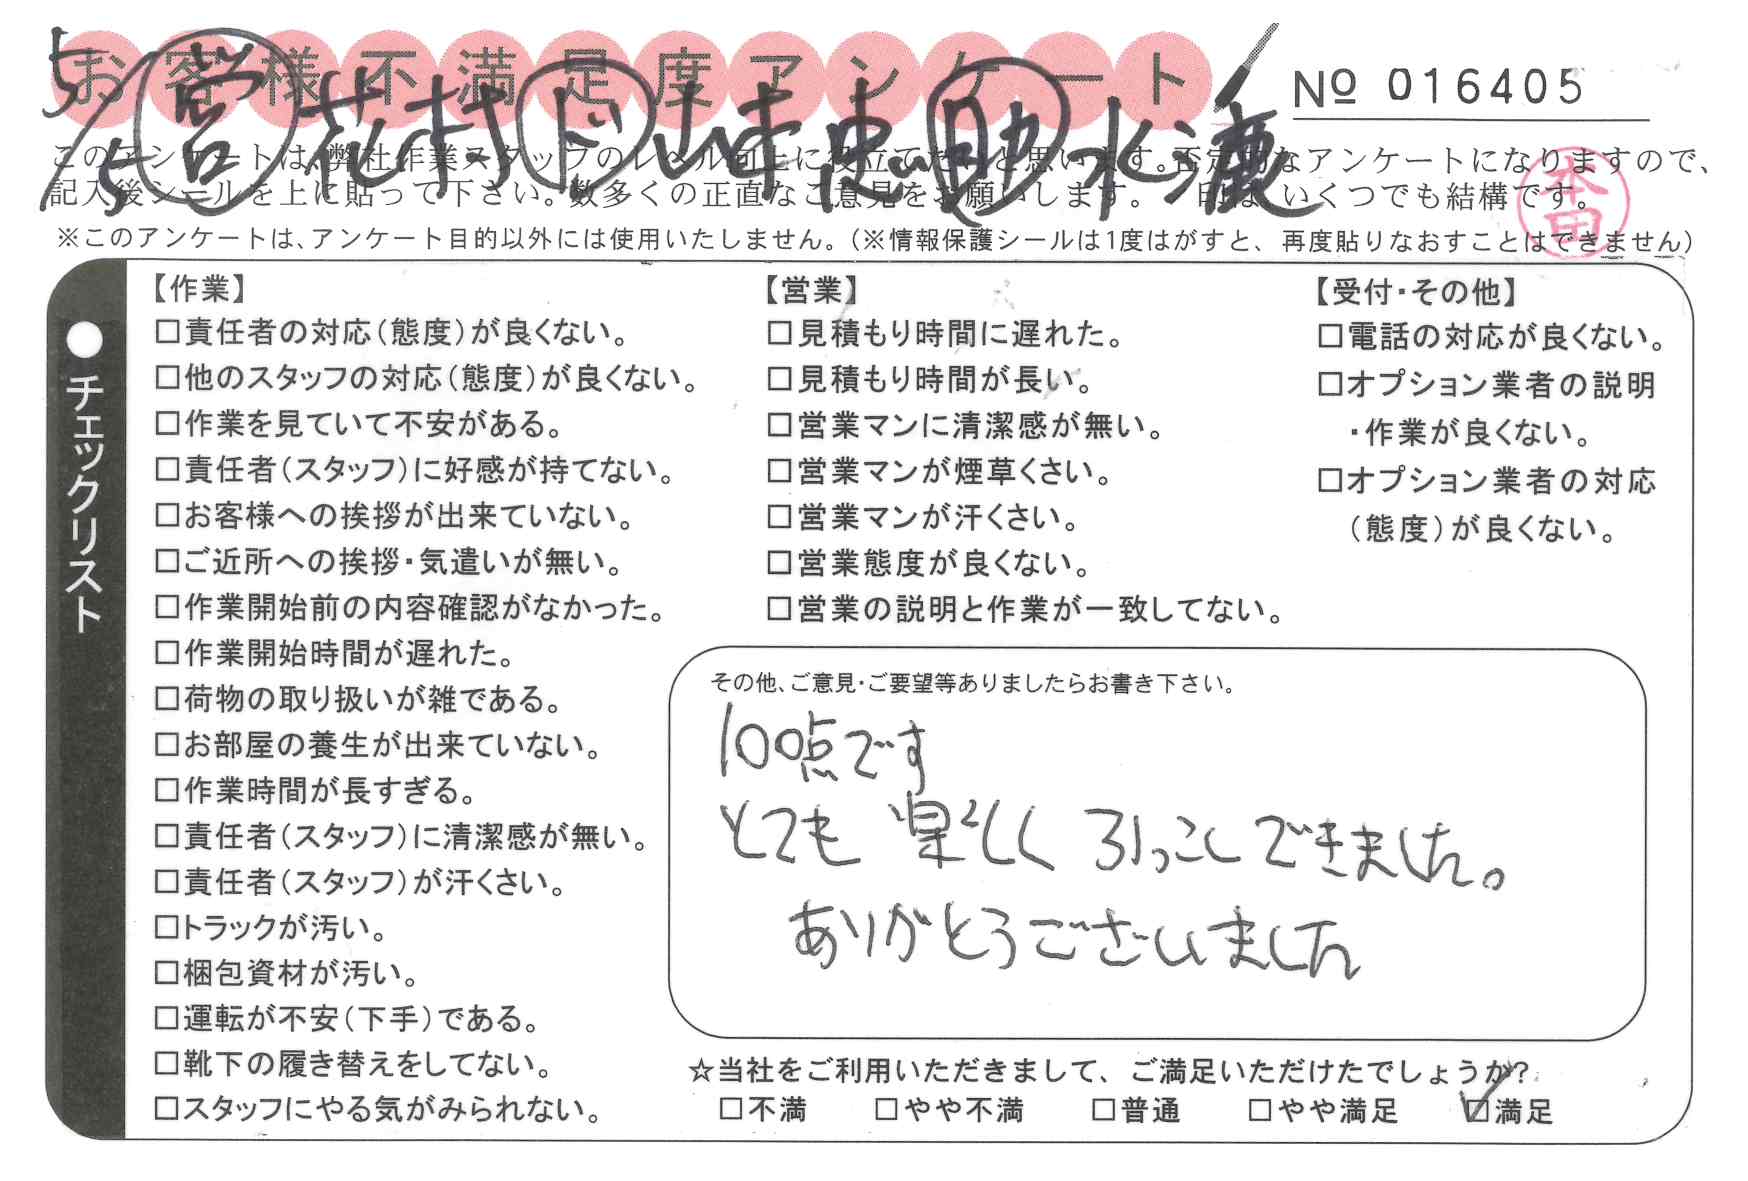 お客様不満足度アンケート
No 016405
5/5 営 花村 ド 山本 助
このアンケートは、弊社作業スタッフのレベル向上に役立てたいと思います。否定的なアンケートになりますので、
記入後シールを上に貼って下さい。数多くの正直なご意見をお願いします。✓印は、いくつでも結構です。
本田
※このアンケートは、アンケート目的以外には使用いたしません。（※情報保護シールは1度はがすと、再度貼りなおすことはできません）
●チェックリスト
【作業】
□責任者の対応（態度）が良くない。
□他のスタッフの対応（態度）が良くない。
□作業を見ていて不安がある。
□責任者（スタッフ）に好感が持てない。
□お客様への挨拶が出来ていない。
□ご近所への挨拶・気遣いが無い。
□作業開始前の内容確認がなかった。
□作業開始時間が遅れた。
□荷物の取り扱いが雑である。
□お部屋の養生が出来ていない。
□作業時間が長すぎる。
□責任者（スタッフ）に清潔感が無い。
□責任者（スタッフ）が汗くさい。
□トラックが汚い。
□梱包資材が汚い。
□運転が不安（下手）である。
□靴下の履き替えをしてない。
□スタッフにやる気がみられない。
【営業】
□見積もり時間に遅れた。
□見積もり時間が長い。
□営業マンに清潔感が無い。
□営業マンが煙草くさい。
□営業マンが汗くさい。
□営業態度が良くない。
□営業の説明と作業が一致してない。
【受付・その他】
□電話の対応が良くない。
□オプション業者の説明
・作業が良くない。
□オプション業者の対応
（態度）が良くない。
その他、ご意見・ご要望等ありましたらお書き下さい。
100点です
とても 楽しく 引っこしできました。
ありがとうございました
☆当社をご利用いただきまして、ご満足いただけたでしょうか？
□不満 □やや不満 □普通 □やや満足 ☑満足